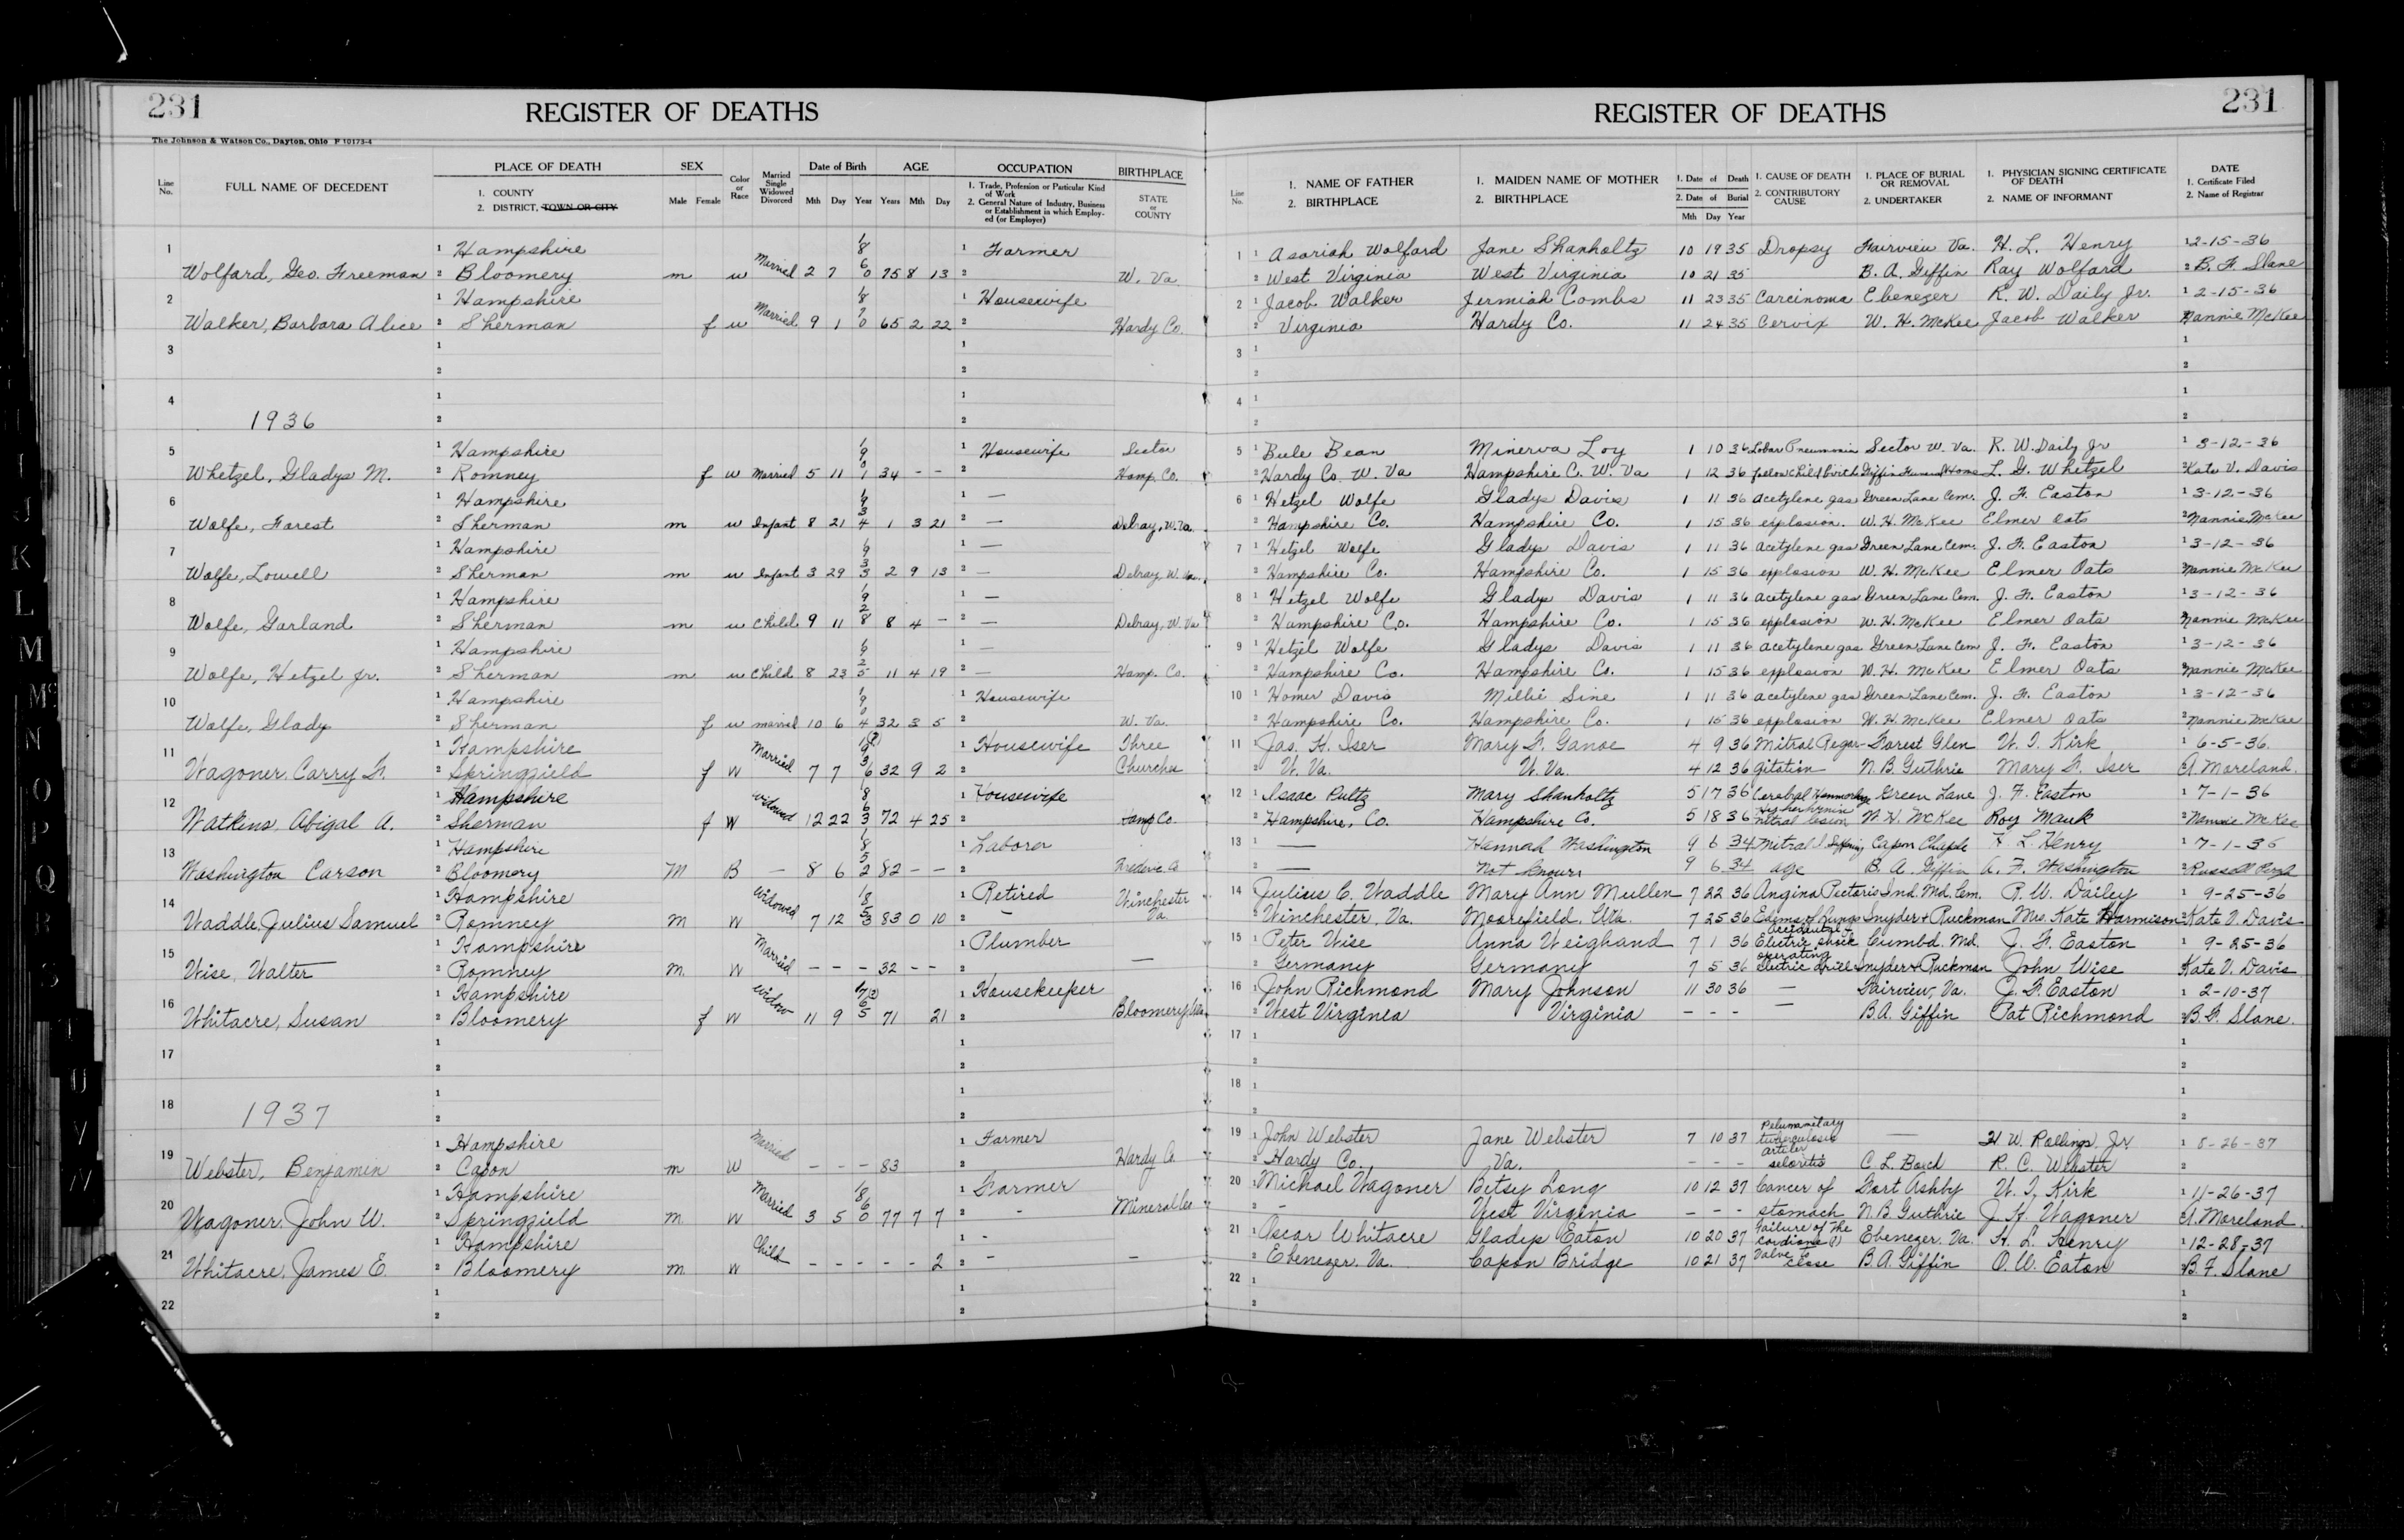 231 REGISTER OF DEATHS REGISTER OF DEATHS 231
The Johnson & Watson Co., Dayton, Ohio F 10173-4
Line No. FULL NAME OF DECEDENT PLACE OF DEATH 1. COUNTY 2. DISTRICT, TOWN OR CITY SEX Male Female Color or Race Married Single Widowed Divorced Date of Birth Mth Day Year AGE Years Mth Day OCCUPATION 1. Trade, Profession or Particular Kind of Work 2. General Nature of Industry, Business or Establishment in which Employed (or Employer) BIRTHPLACE STATE or COUNTY
Line No. 1. NAME OF FATHER 2. BIRTHPLACE 1. MAIDEN NAME OF MOTHER 2. BIRTHPLACE 1. Date of Death 2. Date of Burial Mth Day Year 1. CAUSE OF DEATH 2. CONTRIBUTORY CAUSE 1. PLACE OF BURIAL OR REMOVAL 2. UNDERTAKER 1. PHYSICIAN SIGNING CERTIFICATE OF DEATH 2. NAME OF INFORMANT DATE 1. Certificate Filed 2. Name of Registrar
1 1 Hampshire 1 Farmer 1 1 Asariah Wolfard Jane Shanholtz 10 19 35 Dropsy Fairview Va. H. L. Henry 1 2-15-36
Wolfard, Geo. Freeman 2 Bloomery m w Married 2 7 1860 75 8 13 2 W. Va 2 West Virginia West Virginia 10 21 35 B. A. Giffin Ray Wolfard 2 B. F. Slane
2 1 Hampshire 1 Housewife 2 1 Jacob Walker Jermiah Combs 11 23 35 Carcinoma Ebenezer R. W. Daily Jr. 1 2-15-36
Walker, Barbara Alice 2 Sherman f w Married 9 1 1870 65 2 22 2 Hardy Co. 2 Virginia Hardy Co. 11 24 35 Cervix W. H. McKee Jacob Walker 2 Nannie McKee
3 1 1 3 1 1
2 2 2 2
4 1 1 4 1 1
1936 2 2 2 2
5 1 Hampshire 1 Housewife Sector 5 1 Bule Bean Minerva Loy 1 10 36 Lobar Pneumonia Sector W. Va. R. W. Daily Jr 1 3-12-36
Whetzel, Gladys M. 2 Romney f w Married 5 11 1901 34 - - 2 Hamp. Co. 2 Hardy Co. W. Va Hampshire C. W. Va 1 12 36 follow Childbirth Giffin Funeral Home L. G. Whetzel 2 Kate V. Davis
6 1 Hampshire 1 — 6 1 Hetzel Wolfe Gladys Davis 1 11 36 acetylene gas Green Lane Cem. J. F. Easton 1 3-12-36
Wolfe, Forest 2 Sherman m w Infant 8 21 1934 1 3 21 2 — Delray, W. Va. 2 Hampshire Co. Hampshire Co. 1 15 36 explosion. W. H. McKee Elmer Oats 2 Nannie McKee
7 1 Hampshire 1 — 7 1 Hetzel Wolfe Gladys Davis 1 11 36 acetylene gas Green Lane Cem. J. F. Easton 1 3-12-36
Wolfe, Lowell 2 Sherman m w Infant 3 29 1933 2 9 13 2 — Delray, W. Va. 2 Hampshire Co. Hampshire Co. 1 15 36 explosion W. H. McKee Elmer Oats 2 Nannie McKee
8 1 Hampshire 1 — 8 1 Hetzel Wolfe Gladys Davis 1 11 36 acetylene gas Green Lane Cem. J. F. Easton 1 3-12-36
Wolfe, Garland 2 Sherman m w Child 9 11 1928 8 4 - 2 — Delray, W. Va 2 Hampshire Co. Hampshire Co. 1 15 36 explosion W. H. McKee Elmer Oats 2 Nannie McKee
9 1 Hampshire 1 — 9 1 Hetzel Wolfe Gladys Davis 1 11 36 acetylene gas Green Lane Cem J. F. Easton 1 3-12-36
Wolfe, Hetzel Jr. 2 Sherman m w Child 8 23 1925 11 4 19 2 — Hamp. Co. 2 Hampshire Co. Hampshire Co. 1 15 36 explosion W. H. McKee Elmer Oats 2 Nannie McKee
10 1 Hampshire 1 Housewife 10 1 Homer Davis Millie Sine 1 11 36 acetylene gas Green Lane Cem. J. F. Easton 1 3-12-36
Wolfe, Glady 2 Sherman f w married 10 6 1904 32 3 5 2 W. Va. 2 Hampshire Co. Hampshire Co. 1 15 36 explosion W. H. McKee Elmer Oats 2 Nannie McKee
11 1 Hampshire (?) 1 Housewife Three 11 1 Jas. H. Iser Mary F. Ganoe 4 9 36 Mitral Regur- Forest Glen W. T. Kirk 1 6-5-36.
Wagoner, Carry F. 2 Springfield f W Married 7 7 1936 32 9 2 2 Churches 2 W. Va. W. Va. 4 12 36 gitation N. B. Guthrie Mary F. Iser 2 A. Moreland.
12 1 Hampshire 1 Housewife 12 1 Isaac Pultz Mary Shanholtz 5 17 36 Cerebral Hemmorhge Green Lane J. F. Easton 1 7-1-36
Watkins, Abigal A. 2 Sherman f W Widowed 12 22 1863 72 4 25 2 Hamp Co. 2 Hampshire, Co. Hampshire Co. 5 18 36 mitral lesion W. H. McKee Roy Mauk 2 Nannie McKee
13 1 Hampshire 1 Laborer 13 1 — Hannah Washington 9 6 34 Mitral Capon Chaple H. L. Henry 1 7-1-36
Washington Carson 2 Bloomery M B — 8 6 1852 82 - - 2 2 — Not Known 9 6 34 age B. A. Giffin A. F. Washington 2 Russell
14 1 Hampshire 1 Retired Winchester 14 1 Julius C. Waddle Mary Ann Mullen 7 22 36 Angina Pectoris Ind. Md. Cem. R. W. Dailey 1 9-25-36
Waddle, Julius Samuel 2 Romney M W Widowed 7 12 1853 83 0 10 2 - Va. 2 Winchester, Va. Moorefield, WVa. 7 25 36 Edema of Lungs Snyder + Ruckman Mrs. Kate Harmison 2 Kate V. Davis
15 1 Hampshire 1 Plumber 15 1 Peter Wise Anna Weighand 7 1 36 Accidental Electric shock Cumbd. Md. J. F. Easton 1 9-25-36
Wise, Walter 2 Romney M. W Married - - - 32 - - 2 — 2 Germany Germany 7 5 36 operating electric drill Snyder & Ruckman John Wise Kate V. Davis
16 1 Hampshire (?) 1 Housekeeper 16 1 John Richmond Mary Johnson 11 30 36 — Fairview, Va. J. F. Easton 1 2-10-37
Whitacre, Susan 2 Bloomery f W Widow 11 9 1765 71 21 2 Bloomery, WVa. 2 West Virginia Virginia - - - — B. A. Giffin Pat Richmond 2 B. F. Slane.
17 1 1 17 1 1
2 2 2 2
18 1 1 18 1 1
1937 2 2 2 2
19 1 Hampshire 1 Farmer 19 1 John Webster Jane Webster 7 10 37 Pelummitary tuberculosis — W. Rollings, Jr. 1 8-26-37
Webster, Benjamin 2 Capon m W Married - - - 83 2 Hardy Co. 2 Hardy Co. Va. - - - arteler seloritis C. L. R. C. Webster 2
20 1 Hampshire 1 Farmer 20 1 Michael Wagoner Betsy Long 10 12 37 Cancer of Fort Ashby W. T. Kirk 1 11-26-37
Wagoner, John W. 2 Springfield M. W Married 3 5 1860 77 7 7 2 - Mineral Co 2 - West Virginia - - - stomach N. B. Guthrie J. H. Wagoner 2 A. Moreland.
21 1 Hampshire 1 - 21 1 Oscar Whitacre Gladys Eaton 10 20 37 Failure of the cordiane (?) Ebenezer, Va. H. L. Henry 1 12-28-37
Whitacre, James E. 2 Bloomery M. W Child - - - - - 2 2 - - 2 Ebenezer, Va. Capon Bridge 10 21 37 Valve to close B. A. Giffin O. W. Eaton 2 B. F. Slane
22 1 1 22 1 1
2 2 2 2
J
K
L
M
Mc
N
O
P
Q
R
S
U
V
W